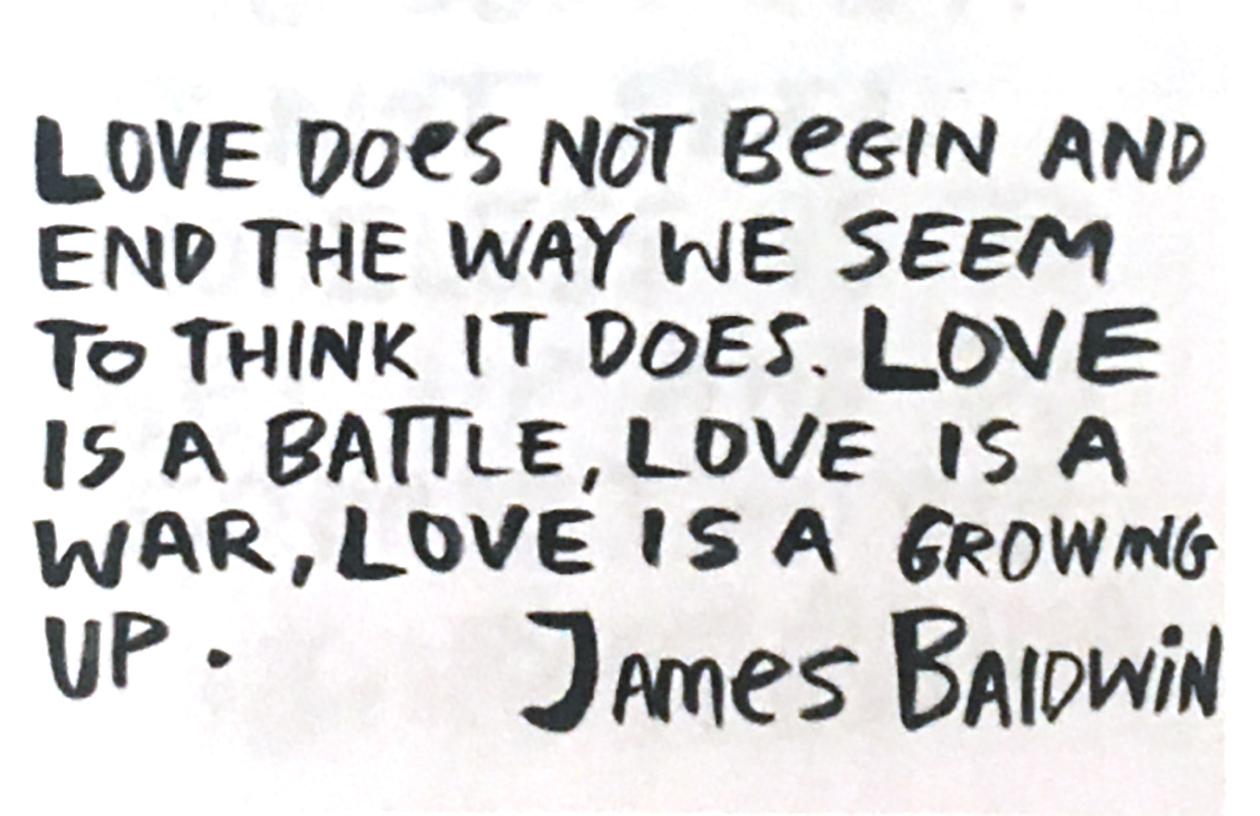 LOVE DOeS NOT BeGIN AND
END THE WAY WE SEEM
To THINK IT DOES. LOVE
IS A BATTLE, LOVE IS A
WAR, LOVE IS A GROWING
UP. JAmes BALDWiN